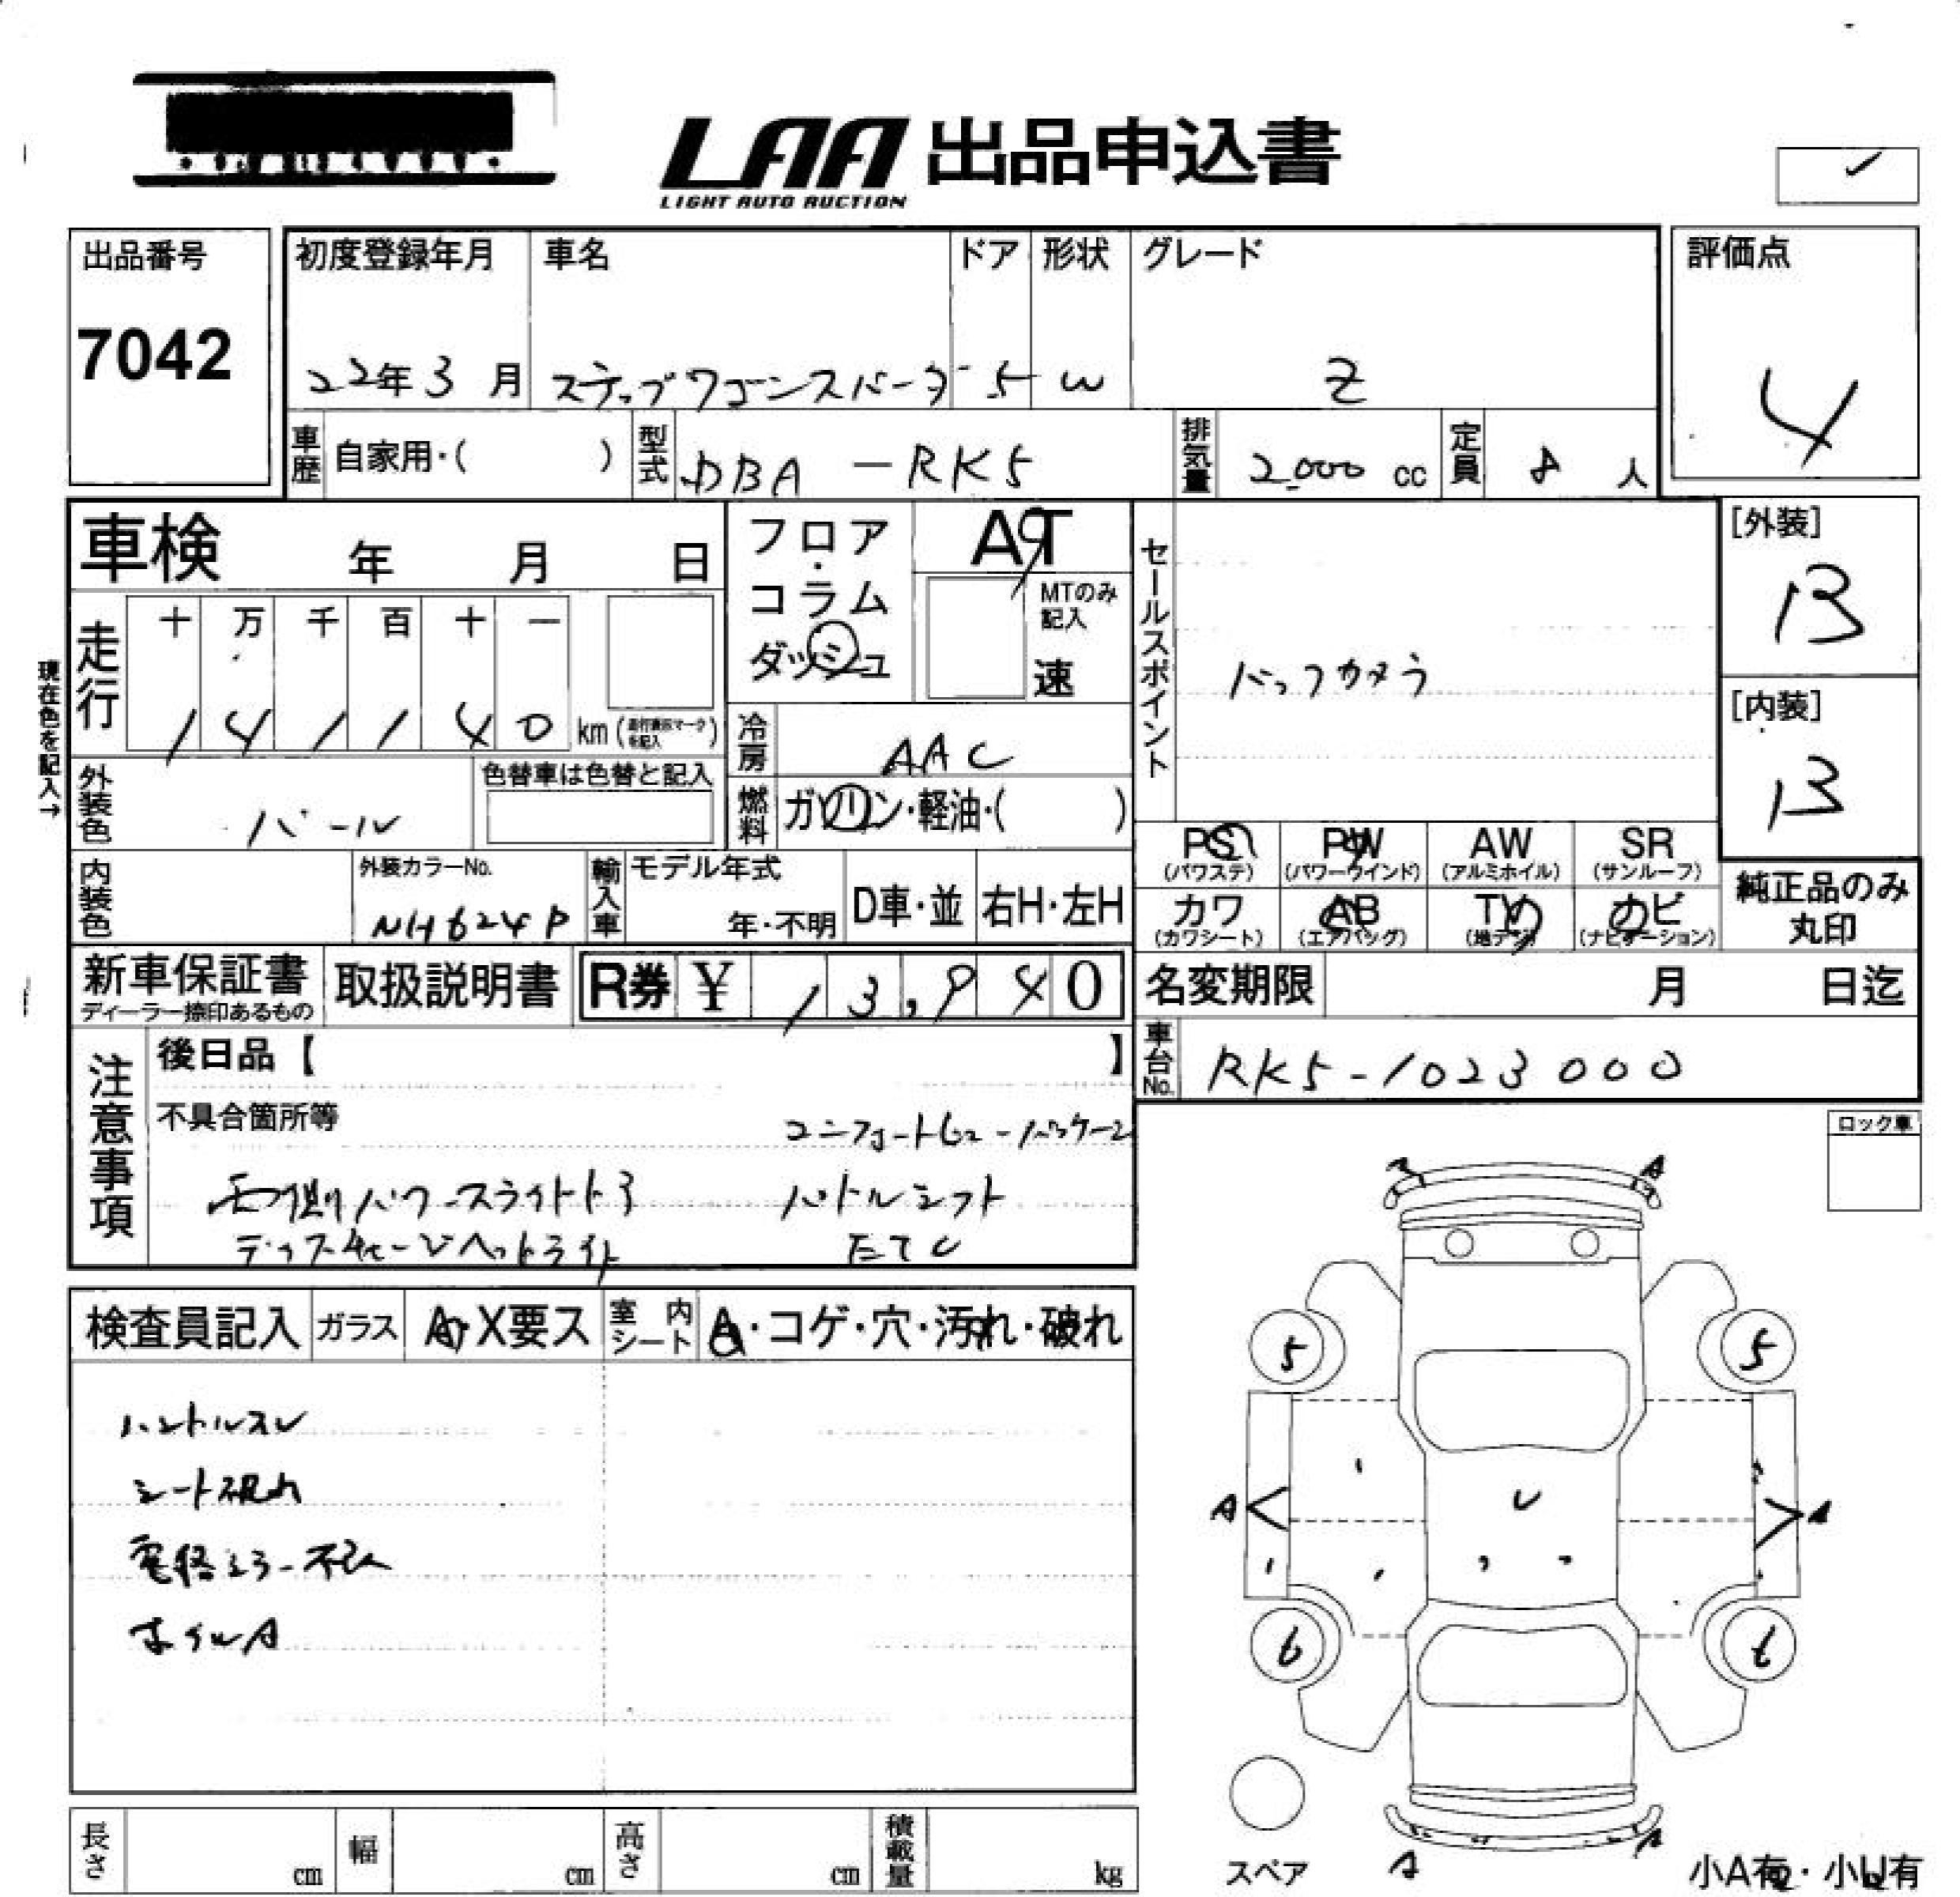 LAA 出品申込書
LIGHT AUTO AUCTION
出品番号
7042
初度登録年月
22年3月
車名
ステップワゴンスパーダ
ドア
5
形状
W
グレード
Z
評価点
4
車歴 自家用・( )
型式 DBA-RK5
排気量 2,000 cc
定員 8 人
車検 年 月 日
フロア・コラム
ダッシュ
AT
MTのみ記入
速
現在色を記入→
走行 十 万 千 百 十 一
1 4 1 1 4 0 km (走行表示マークを記入)
冷房 AAC
外装色 パール
色替車は色替と記入
燃料 ガソリン・軽油・( )
セールスポイント
バックカメラ
[外装]
B
[内装]
B
PS (パワステ)
PW (パワーウインド)
AW (アルミホイル)
SR (サンルーフ)
カワ (カワシート)
AB (エアバッグ)
TV (地デジ)
ナビ (ナビゲーション)
純正品のみ丸印
内装色
外装カラーNo.
NH624P
輸入車
モデル年式
年・不明
D車・並
右H・左H
新車保証書
ディーラー捺印あるもの
取扱説明書
R券 ¥ 13,940
名変期限 月 日迄
車台No. RK5-1023000
注意事項
後日品【 】
不具合箇所等
両側パワースライドドア
パドルシフト
ETC
ロック車
検査員記入
ガラス A・X要ス
室内シート A・コゲ・穴・汚れ・破れ
ハンドルスレ
シート破れ
ホイルA
A
A
5
5
A
A
U
6
6
A
A
スペア
小A有・小U有
長さ cm
幅 cm
高さ cm
積載量 kg